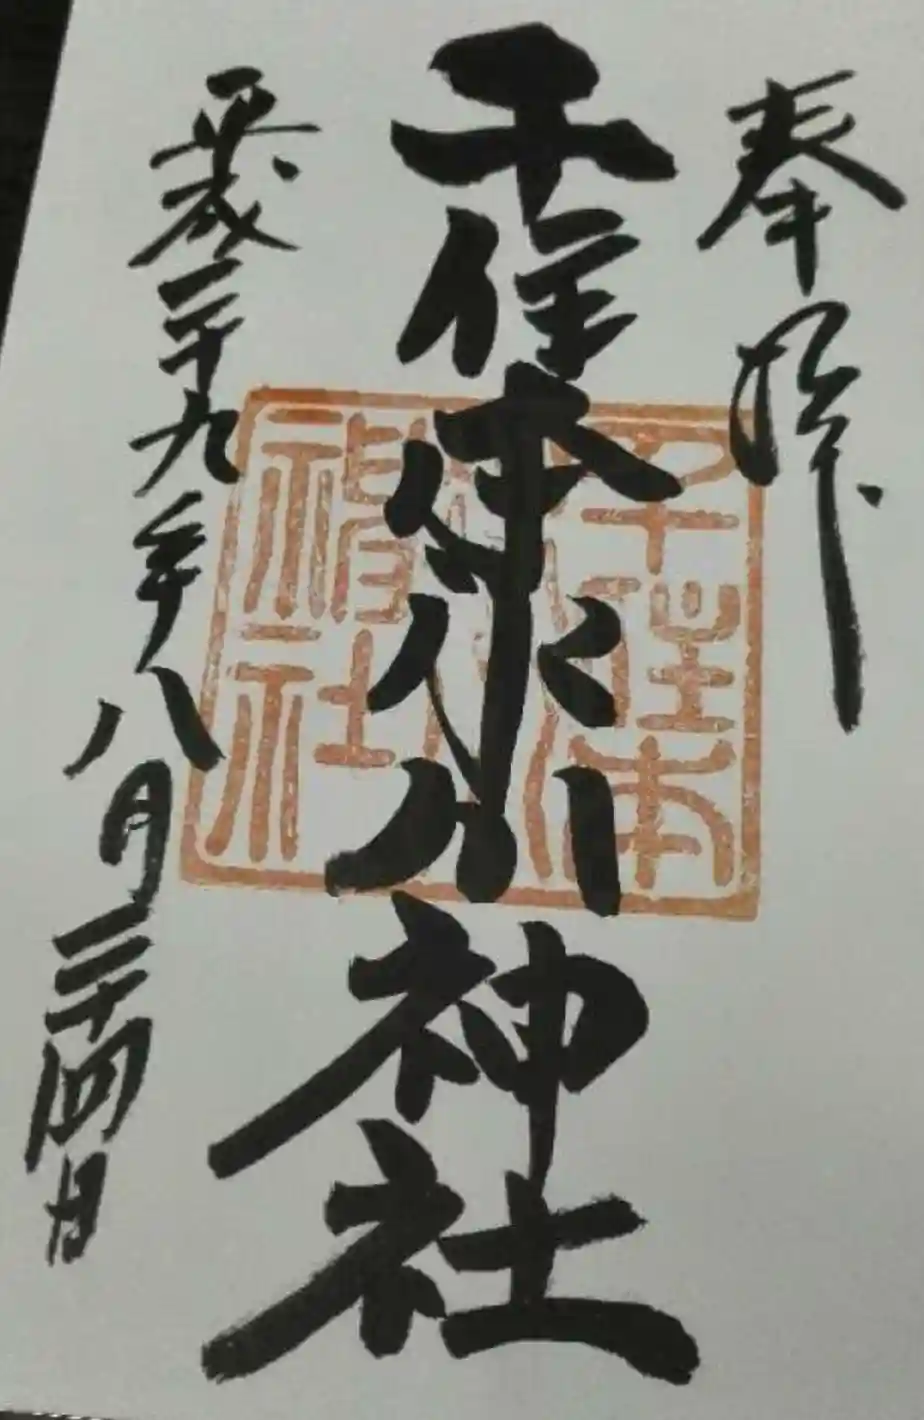 奉拝
千住本氷川神社
平成二十九年八月二十四日
千住本
神社